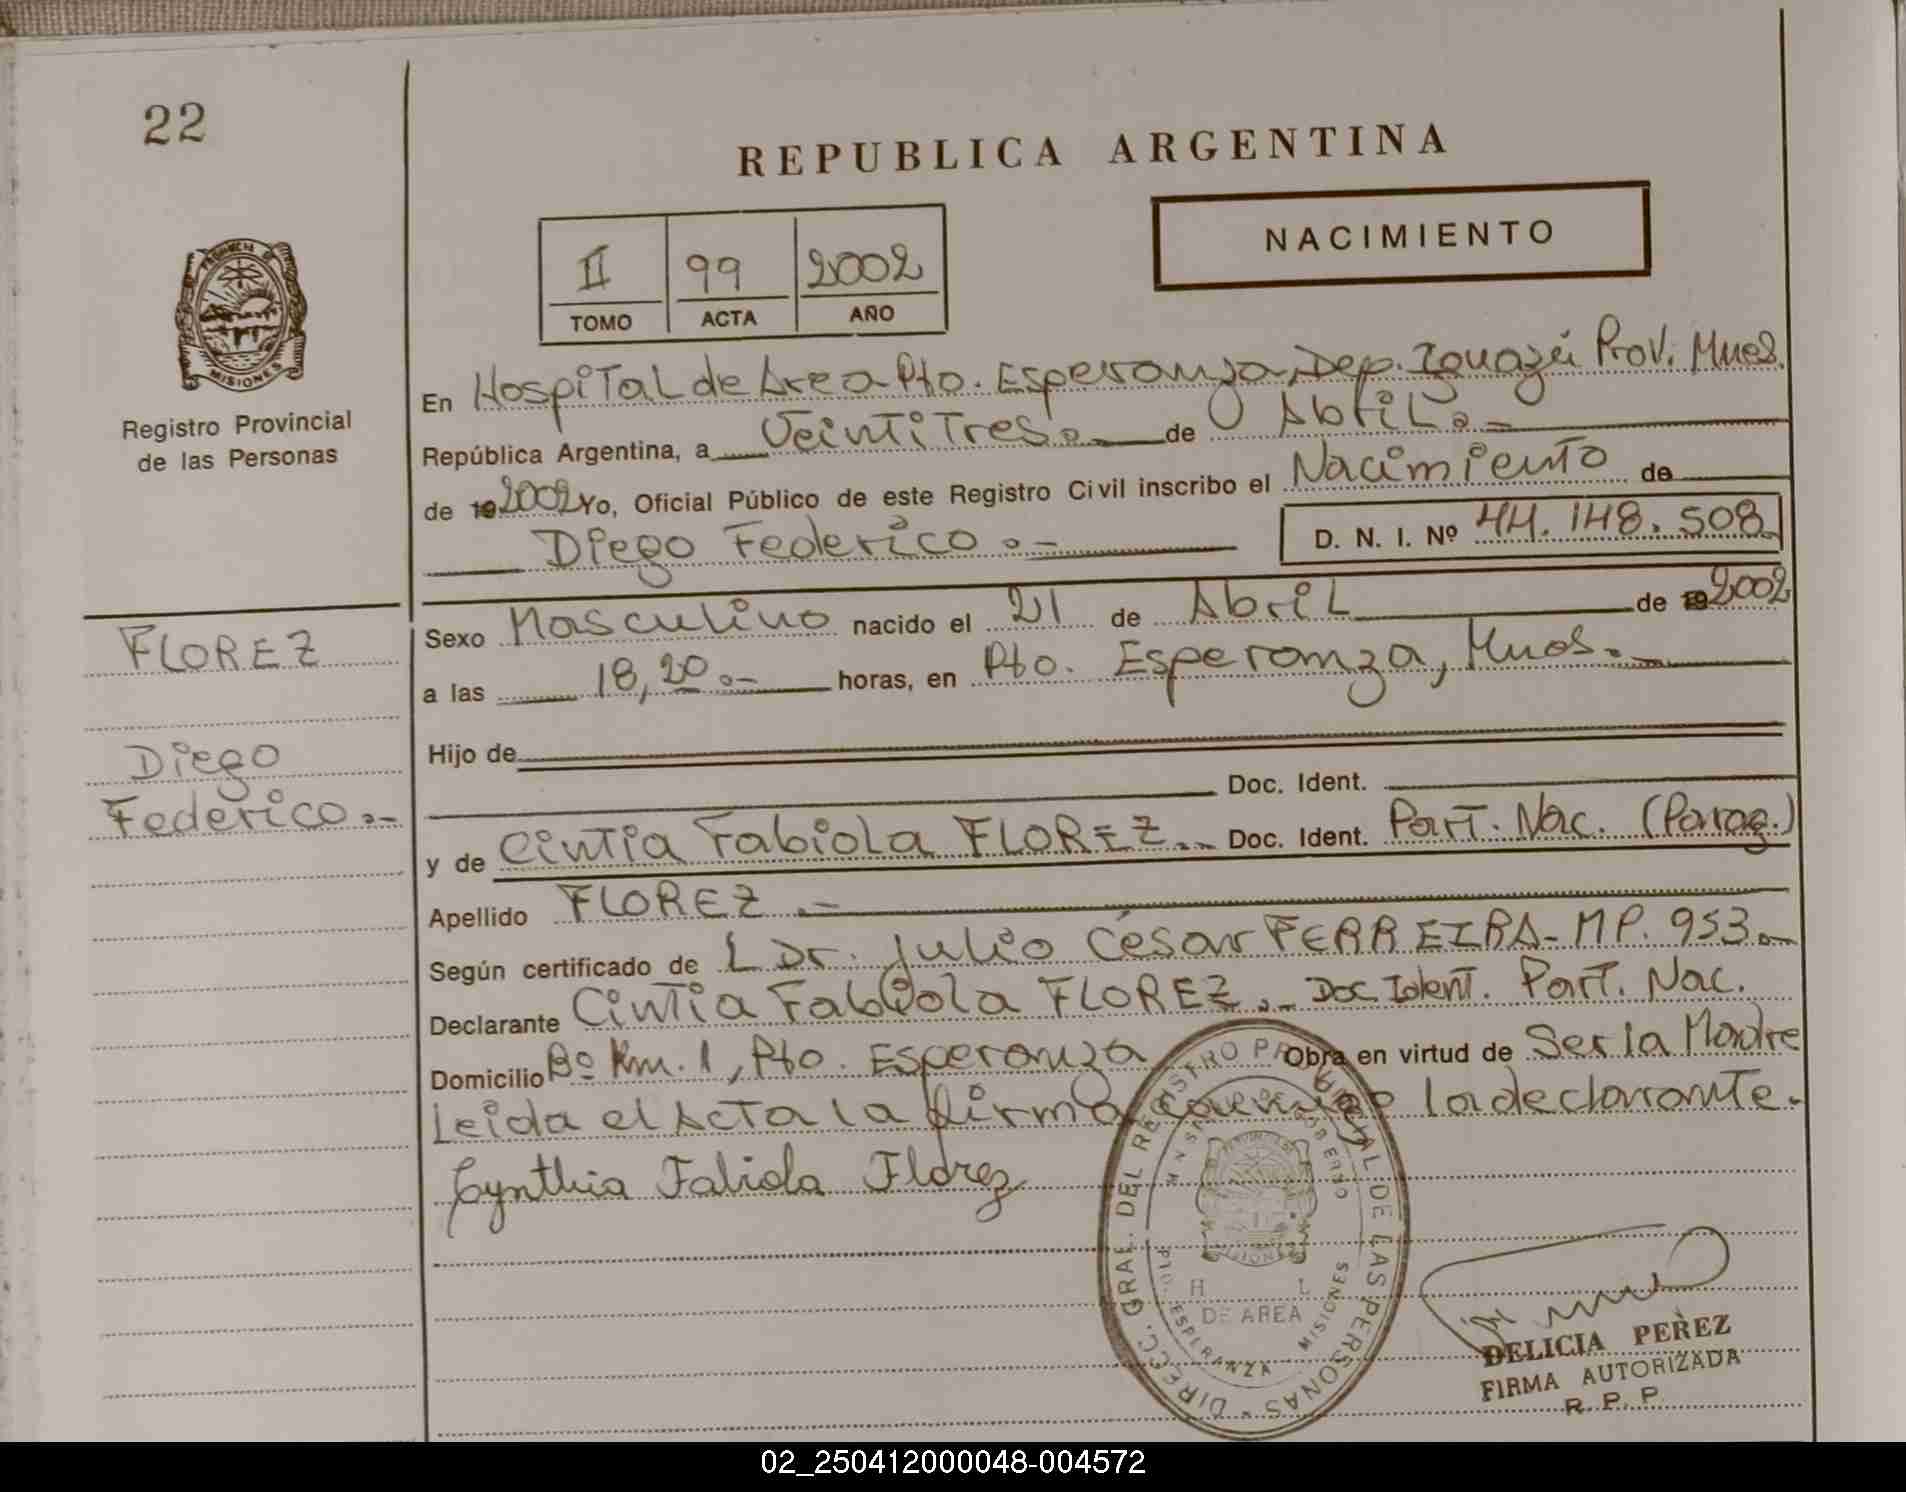 22
REPUBLICA ARGENTINA
NACIMIENTO
II 99 2002
TOMO ACTA AÑO
PROVINCIA DE
MISIONES
Registro Provincial
de las Personas
En Hospital de Area Pto. Esperanza, Dep. Iguazú Prov. Mnes.
República Argentina, a Veintitres.- de Abril.-
de 192002 Yo, Oficial Público de este Registro Civil inscribo el Nacimiento de
Diego Federico.- D. N. I. Nº 44.148.508
FLOREZ
Diego
Federico.-
Sexo Masculino nacido el 21 de Abril de 192002
a las 18,20.- horas, en Pto. Esperanza, Mnes.-
Hijo de
Doc. Ident.
y de Cintia Fabiola FLOREZ.- Doc. Ident. Part. Nac. (Parag.)
Apellido FLOREZ.-
Según certificado de L Dr. Julio César FERREIRA- MP. 953.-
Declarante Cintia Fabiola FLOREZ.- Doc Ident. Part. Nac.
Domicilio Bº Km. 1, Pto. Esperanza Obra en virtud de Ser la Madre
Leida el Acta la firma conmigo la declarante.
Cynthia Fabiola Florez
DIRECC. GRAL. DEL REGISTRO PROVINCIAL DE LAS PERSONAS
DE AREA
PTO. ESPERANZA - MISIONES
DELICIA PEREZ
FIRMA AUTORIZADA
R. P. P.
02_250412000048-004572